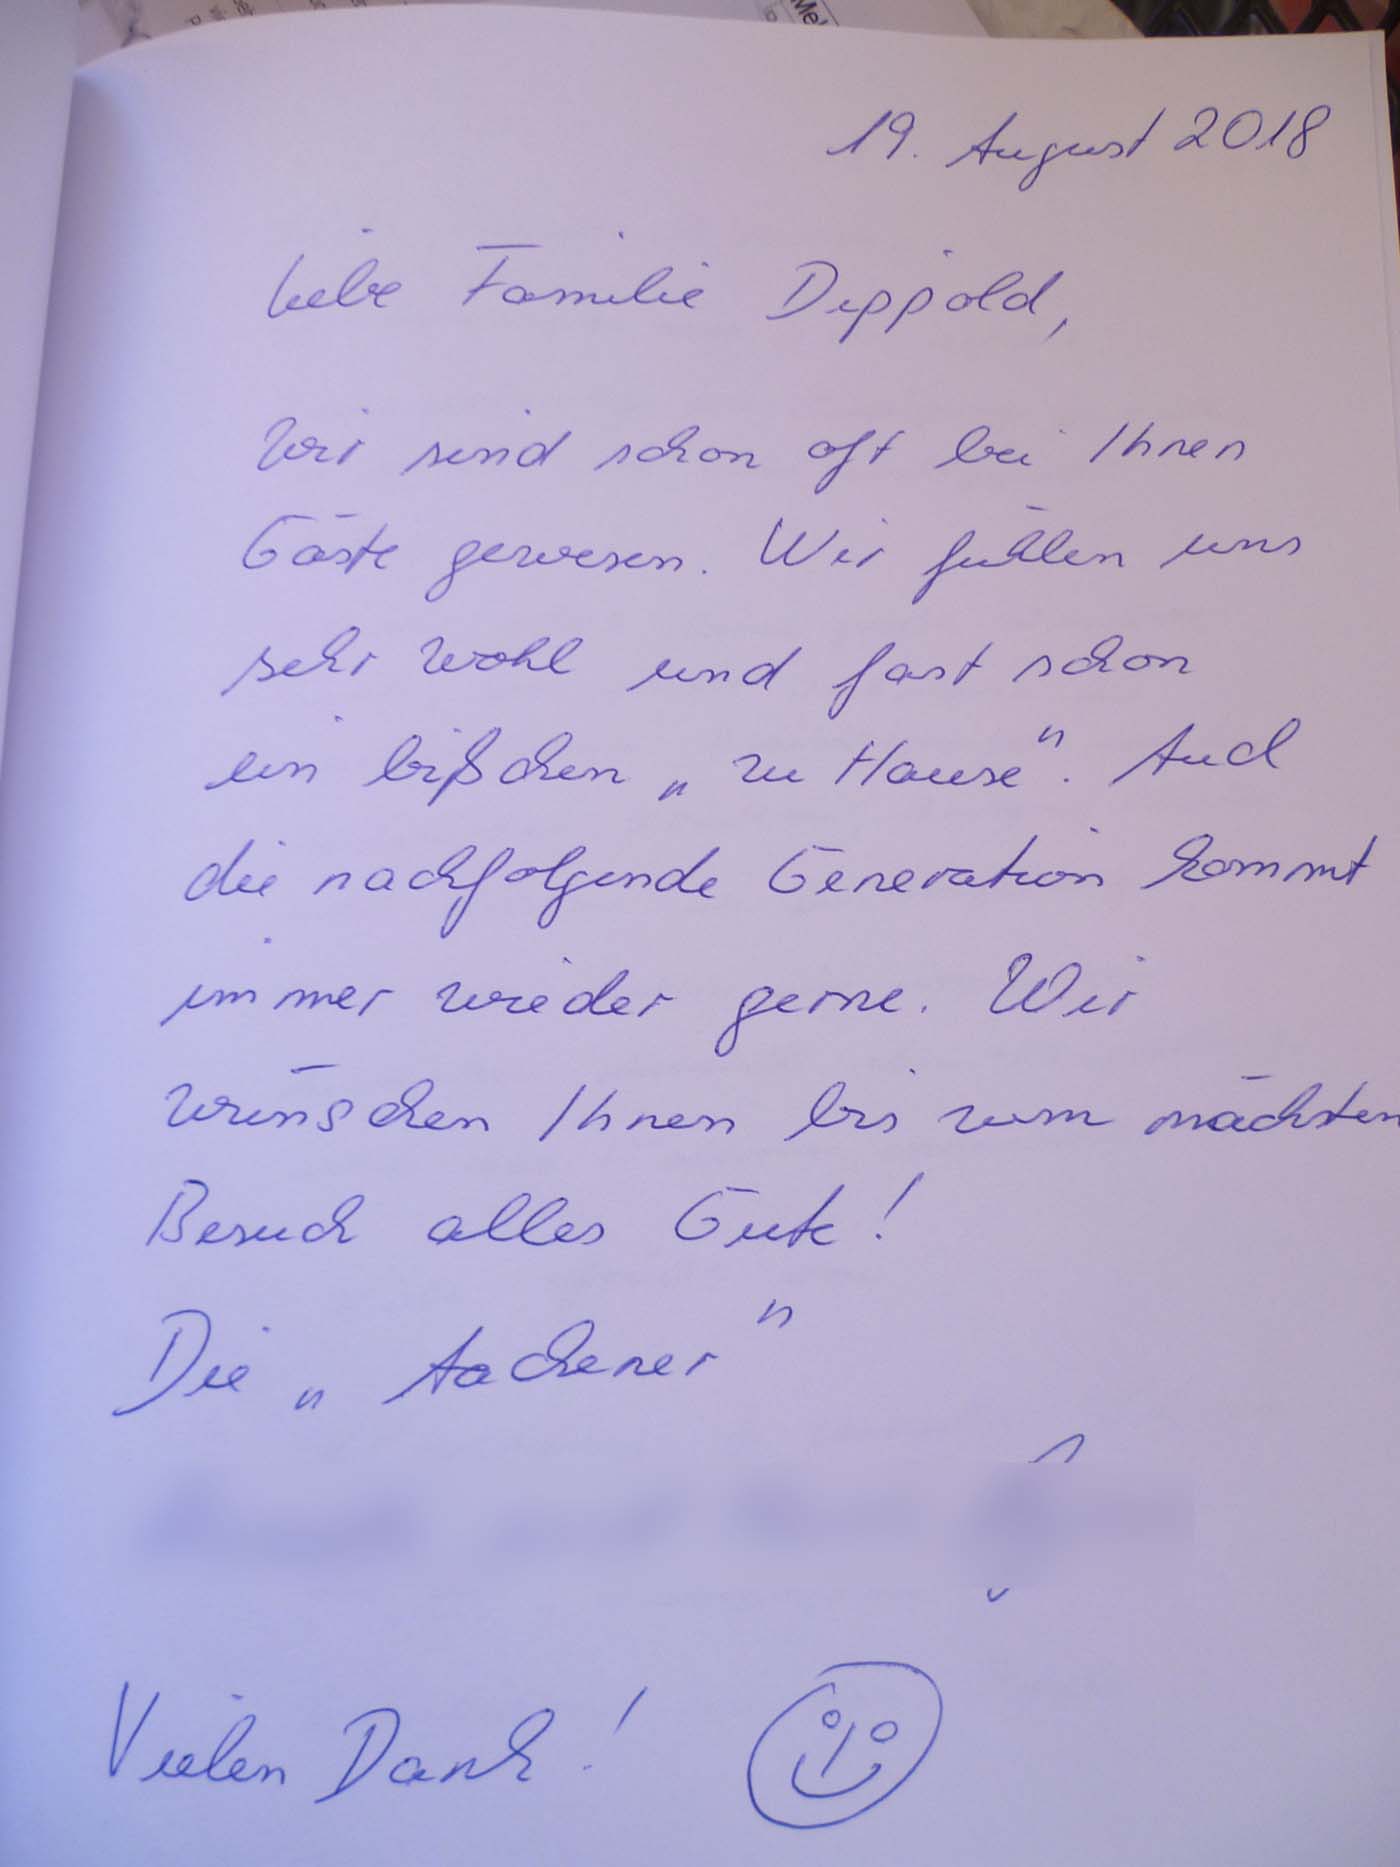 19. August 2018
Liebe Familie Dippold,
Wir sind schon oft bei Ihnen
Gäste gewesen. Wir fühlen uns
sehr wohl und fast schon
ein bißchen „zu Hause". Auch
die nachfolgende Generation kommt
immer wieder gerne. Wir
wünschen Ihnen bis zum nächsten
Besuch alles Gute!
Die „Aachener"
Vielen Dank!